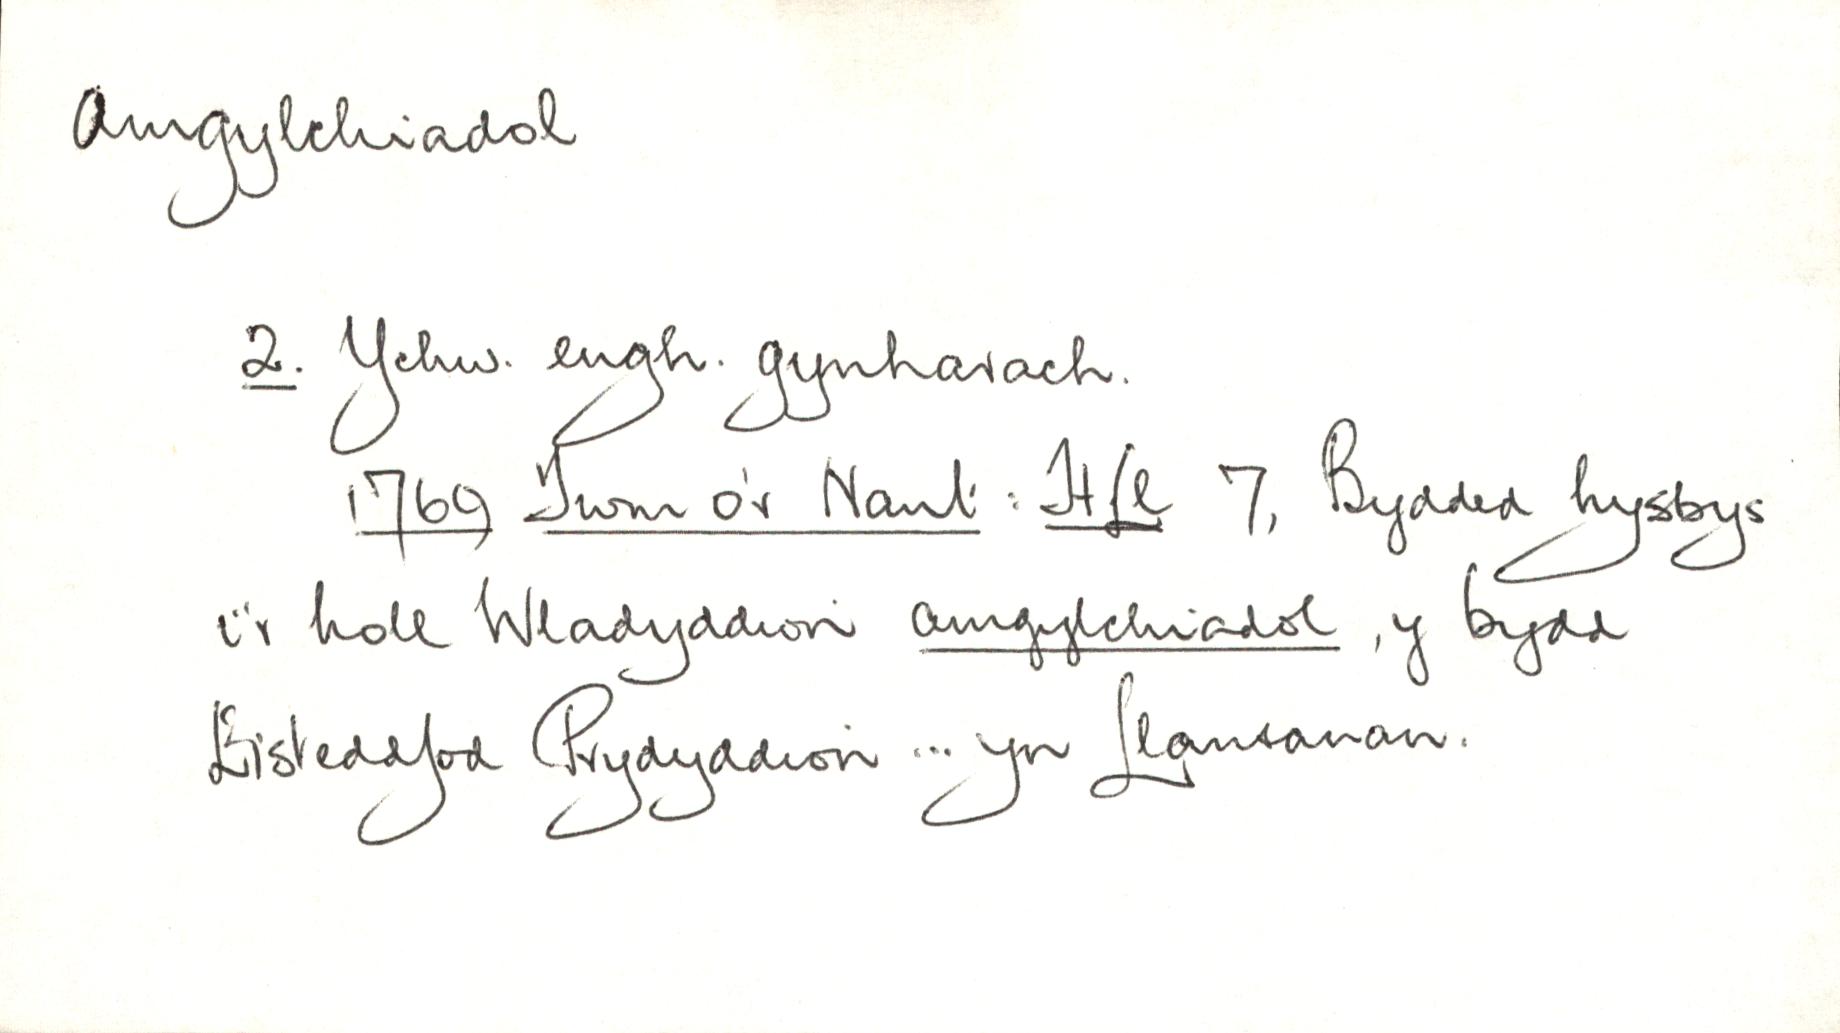 Amgylchiadol
2. Ychw. engh. gynharach.
1769 Twm o'r Nant: Hfl 7, Bydded hysbys
i'r holl Wladyddion amgylchiadol, y bydd
Eisteddfod Prydyddion ... yn Llansanan.